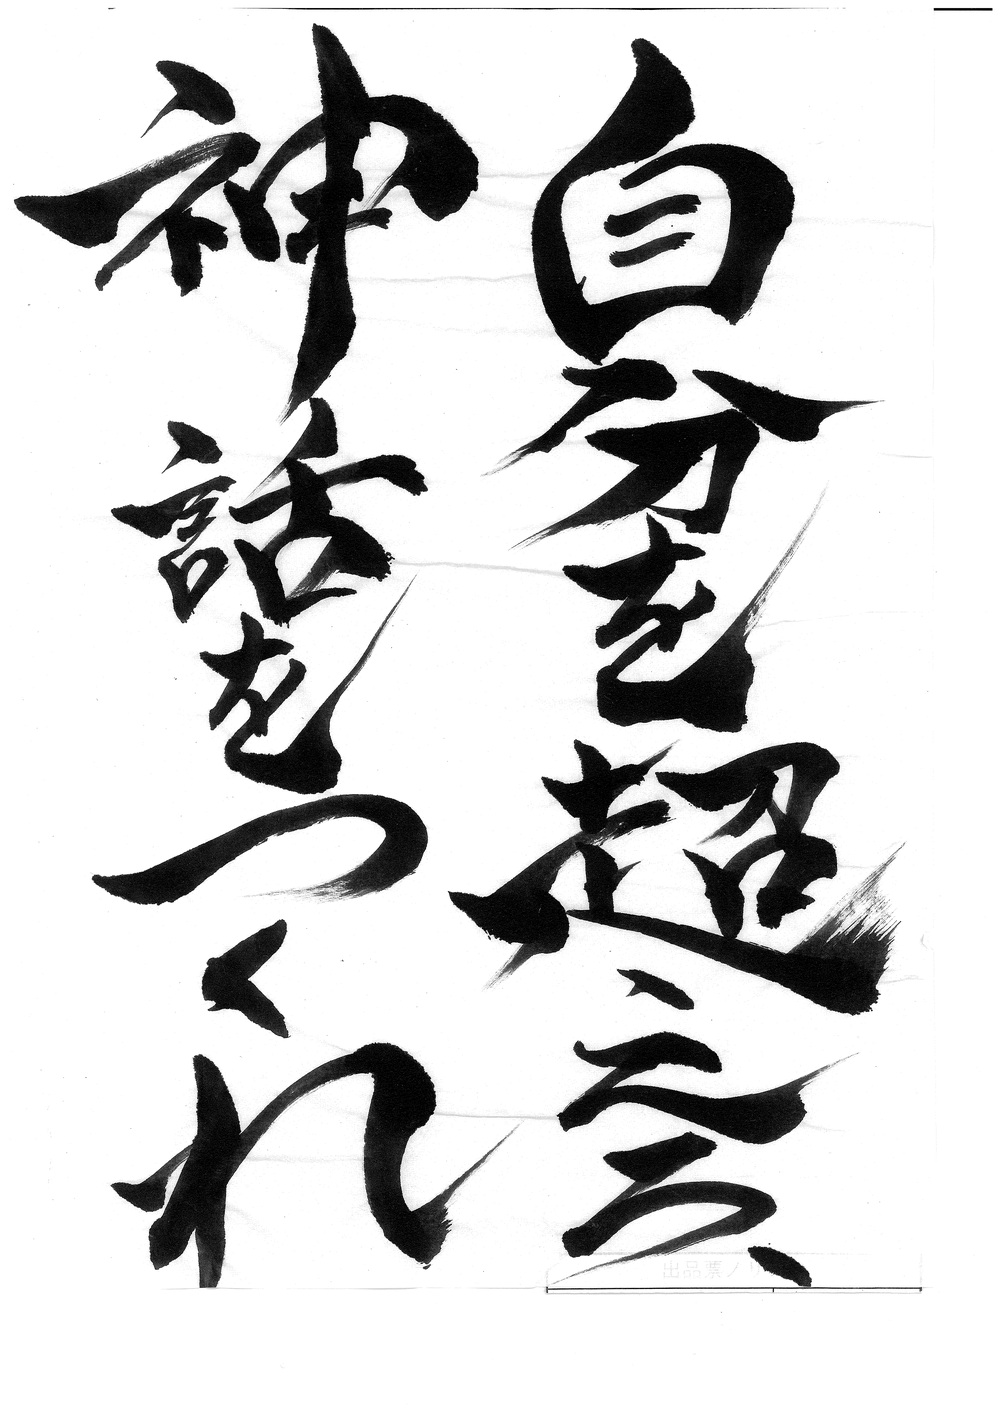 自分を超える、
神話をつくれ
出品票ノリ